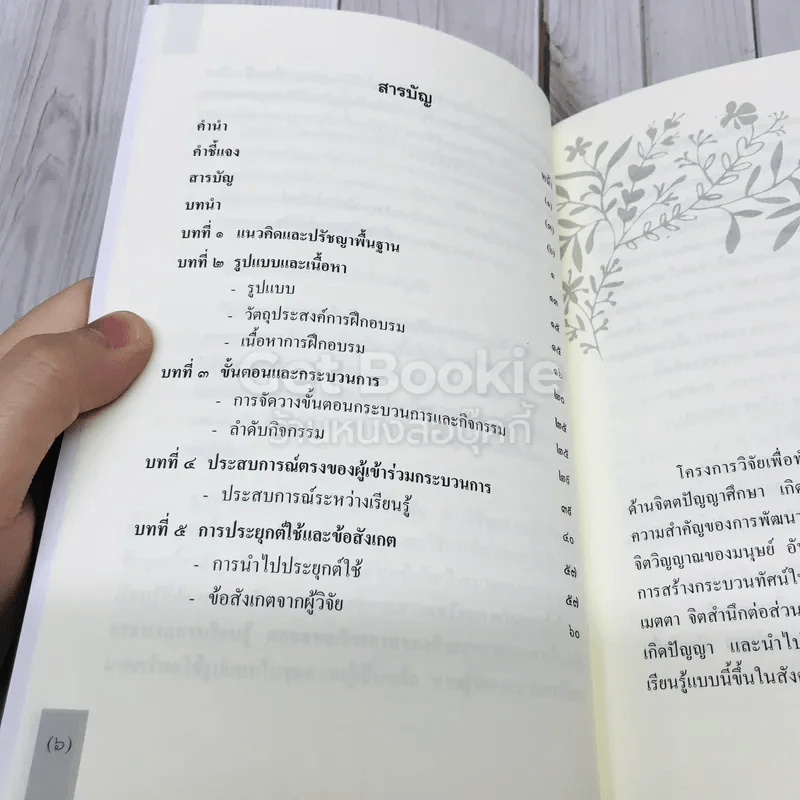 สารบัญ
หน้า
คำนำ (๑)
คำชี้แจง (๓)
สารบัญ (๖)
บทนำ ๑
บทที่ ๑ แนวคิดและปรัชญาพื้นฐาน ๑๓
บทที่ ๒ รูปแบบและเนื้อหา ๑๕
- รูปแบบ ๑๕
- วัตถุประสงค์การฝึกอบรม ๑๖
- เนื้อหาการฝึกอบรม ๒๐
บทที่ ๓ ขั้นตอนและกระบวนการ ๒๕
- การจัดวางขั้นตอนกระบวนการและกิจกรรม ๒๕
- ลำดับกิจกรรม
บทที่ ๔ ประสบการณ์ตรงของผู้เข้าร่วมกระบวนการ ๓๕
- ประสบการณ์ระหว่างเรียนรู้ ๔๐
บทที่ ๕ การประยุกต์ใช้และข้อสังเกต ๕๗
- การนำไปประยุกต์ใช้ ๕๗
- ข้อสังเกตจากผู้วิจัย ๖๐
(๖)
โครงการวิจัยเพื่อ
ด้านจิตตปัญญาศึกษา
ความสำคัญของการพัฒนา
จิตวิญญาณของมนุษย์
การสร้างกระบวนทัศน์
เมตตา จิตสำนึกต่อส่วน
เกิดปัญญา และนำไป
เรียนรู้แบบนี้ขึ้นในสัง
Get Bookie
ร้านหนังสือบุ๊คกี้